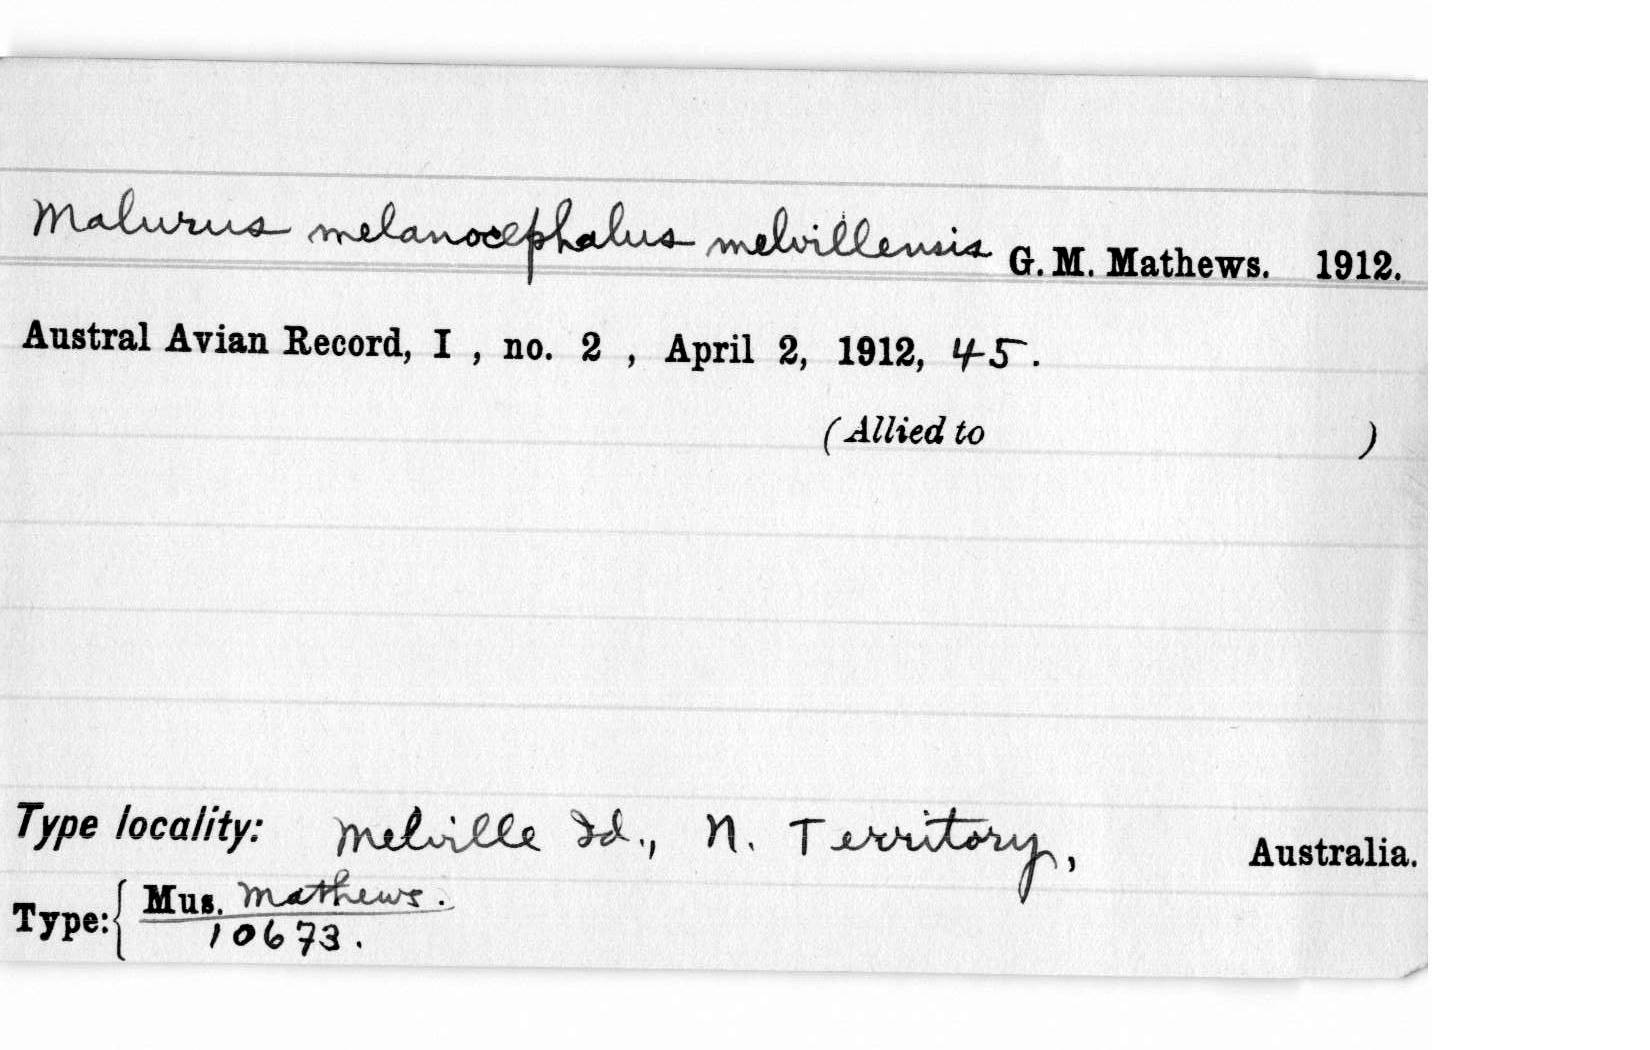 Malurus melanocephalus melvillensis G. M. Mathews. 1912.
Austral Avian Record, I , no. 2 , April 2, 1912, 45.
(Allied to )
Type locality: Melville Id., N. Territory, Australia.
Type: { Mus. Mathews.
10673.